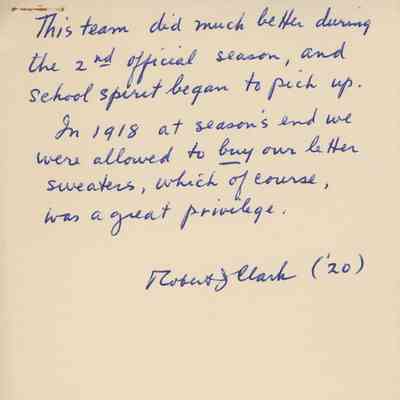 This team did much better during
the 2nd official season, and
school spirit began to pick up.
In 1918 at season's end we
were allowed to buy our letter
sweaters, which of course,
was a great privilege.
Robert J Clark ('20)